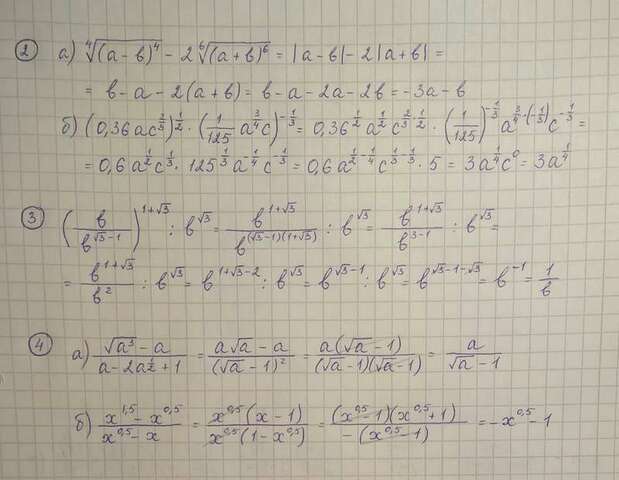 2 а) ⁴√((a-b)⁴) - 2 ⁶√((a+b)⁶) = |a-b| - 2|a+b| =
= b - a - 2(a+b) = b - a - 2a - 2b = -3a - b
б) (0,36ac^(2/3))^(1/2) · (1/125 a^(3/4) c)^(-1/3) = 0,36^(1/2) a^(1/2) c^(2/3·1/2) · (1/125)^(-1/3) a^(3/4·(-1/3)) c^(-1/3) =
= 0,6a^(1/2) c^(1/3) · 125^(1/3) a^(-1/4) c^(-1/3) = 0,6a^(1/2-1/4) c^(1/3-1/3) · 5 = 3a^(1/4) c⁰ = 3a^(1/4)
3 (b/b^(√3-1))^(1+√3) : b^(√3) = b^(1+√3)/b^((√3-1)(1+√3)) : b^(√3) = b^(1+√3)/b^(3-1) : b^(√3) =
= b^(1+√3)/b² : b^(√3) = b^(1+√3-2) : b^(√3) = b^(√3-1) : b^(√3) = b^(√3-1-√3) = b^(-1) = 1/b
4 а) (√(a³) - a)/(a - 2a^(1/2) + 1) = (a√a - a)/(√a - 1)² = a(√a - 1)/((√a - 1)(√a - 1)) = a/(√a - 1)
б) (x^(1,5) - x^(0,5))/(x^(0,5) - x) = x^(0,5)(x - 1)/(x^(0,5)(1 - x^(0,5))) = (x^(0,5) - 1)(x^(0,5) + 1)/(-(x^(0,5) - 1)) = -x^(0,5) - 1